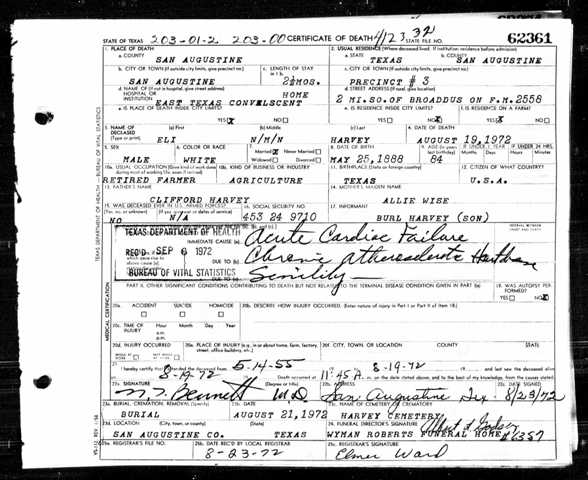 STATE OF TEXAS 203-01-2 203-00 CERTIFICATE OF DEATH STATE FILE NO. 62361
1. PLACE OF DEATH 2. USUAL RESIDENCE (Where deceased lived. If institution: residence before admission)
a. COUNTY SAN AUGUSTINE a. STATE TEXAS b. COUNTY SAN AUGUSTINE
b. CITY OR TOWN (If outside city limits, give precinct no.) c. LENGTH OF STAY c. CITY OR TOWN (If outside city limits, give precinct no.)
SAN AUGUSTINE 2½MOS. PRECINCT # 3
d. NAME OF (If not in hospital, give street address) HOSPITAL OR INSTITUTION d. STREET ADDRESS (If rural, give location)
EAST TEXAS CONVELSCENT HOME 2 MI.SO.OF BROADDUS ON F.M.2558
e. IS PLACE OF DEATH INSIDE CITY LIMITS? e. IS RESIDENCE INSIDE CITY LIMITS? f. IS RESIDENCE ON A FARM?
YES X NO YES NO X YES NO X
3. NAME OF DECEASED (Type or print) (a) First (b) Middle (c) Last 4. DATE OF DEATH
ELI N/M/N HARVEY AUGUST 19,1972
5. SEX 6. COLOR OR RACE 7. Married Never Married Widowed Divorced 8. DATE OF BIRTH 9. AGE (In years last birthday) IF UNDER 1 YEAR IF UNDER 24 HRS.
MALE WHITE MAY 25,1888 84
10a. USUAL OCCUPATION (Give kind of work done 10b. KIND OF BUSINESS OR INDUSTRY 11. BIRTHPLACE (State or foreign country) 12. CITIZEN OF WHAT COUNTRY?
RETIRED FARMER AGRICULTURE TEXAS U.S.A.
13. FATHER'S NAME 14. MOTHER'S MAIDEN NAME
CLIFFORD HARVEY ALLIE WISE
15. WAS DECEASED EVER IN U.S. ARMED FORCES? 16. SOCIAL SECURITY NO. 17. INFORMANT
NO N/A 453 24 9710 BURL HARVEY (SON)
TEXAS DEPARTMENT OF HEALTH
IMMEDIATE CAUSE (a) Acute Cardiac Failure
REC'D SEP 6 1972
DUE TO (b) Chronic
BUREAU OF VITAL STATISTICS
DUE TO (c) Senility
PART II. OTHER SIGNIFICANT CONDITIONS CONTRIBUTING TO DEATH BUT NOT RELATED TO THE TERMINAL DISEASE CONDITION GIVEN IN PART I(a) 19. WAS AUTOPSY PERFORMED?
YES NO X
20a. ACCIDENT SUICIDE HOMICIDE 20b. DESCRIBE HOW INJURY OCCURRED. (Enter nature of injury in Part I or Part II of item 18)
20c. TIME OF INJURY Hour Month Day Year
a.m.
p.m.
20d. INJURY OCCURRED 20e. PLACE OF INJURY (e.g., in or about home, farm, factory, street, office building, etc.) 20f. CITY, TOWN, OR LOCATION COUNTY STATE
21. I hereby certify that I attended the deceased from 5-14-55 8-19-72 and last saw the deceased alive
8-19-72 Death occurred at 11:45 A. m. on the date stated above; and to the best of my knowledge, from the causes stated.
22a. SIGNATURE (Degree or title) 22b. ADDRESS 22c. DATE SIGNED
Bennett M.D. San Augustine Tex. 8/23/72
23a. BURIAL, CREMATION, REMOVAL (Specify) 23b. DATE 23c. NAME OF CEMETERY OR CREMATORY
BURIAL AUGUST 21,1972 HARVEY CEMETERY
23d. LOCATION (City, town, or county) (State) 24. FUNERAL DIRECTOR'S SIGNATURE
SAN AUGUSTINE CO. TEXAS WYMAN ROBERTS FUNERAL HOME #6357
25a. REGISTRAR'S FILE NO. 25b. DATE REC'D BY LOCAL REGISTRAR 25c. REGISTRAR'S SIGNATURE
8-23-72 Elmer Ward